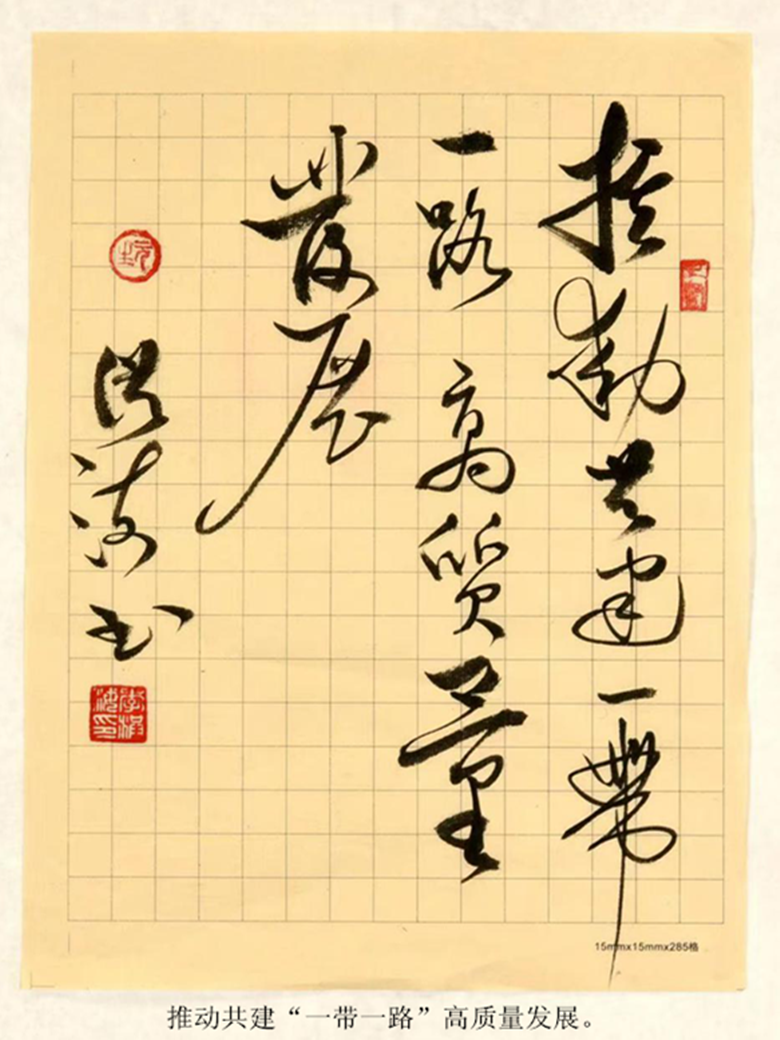 推動共建一帶
一路高質量
發展
浩海书
15mmx15mmx285格
推动共建“一带一路”高质量发展。